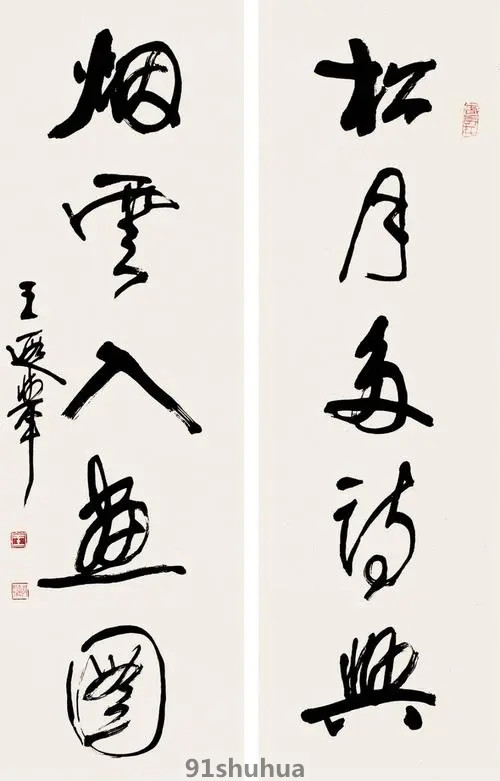 松月多詩興
烟雲入畫圖
王遐舉
91shuhua